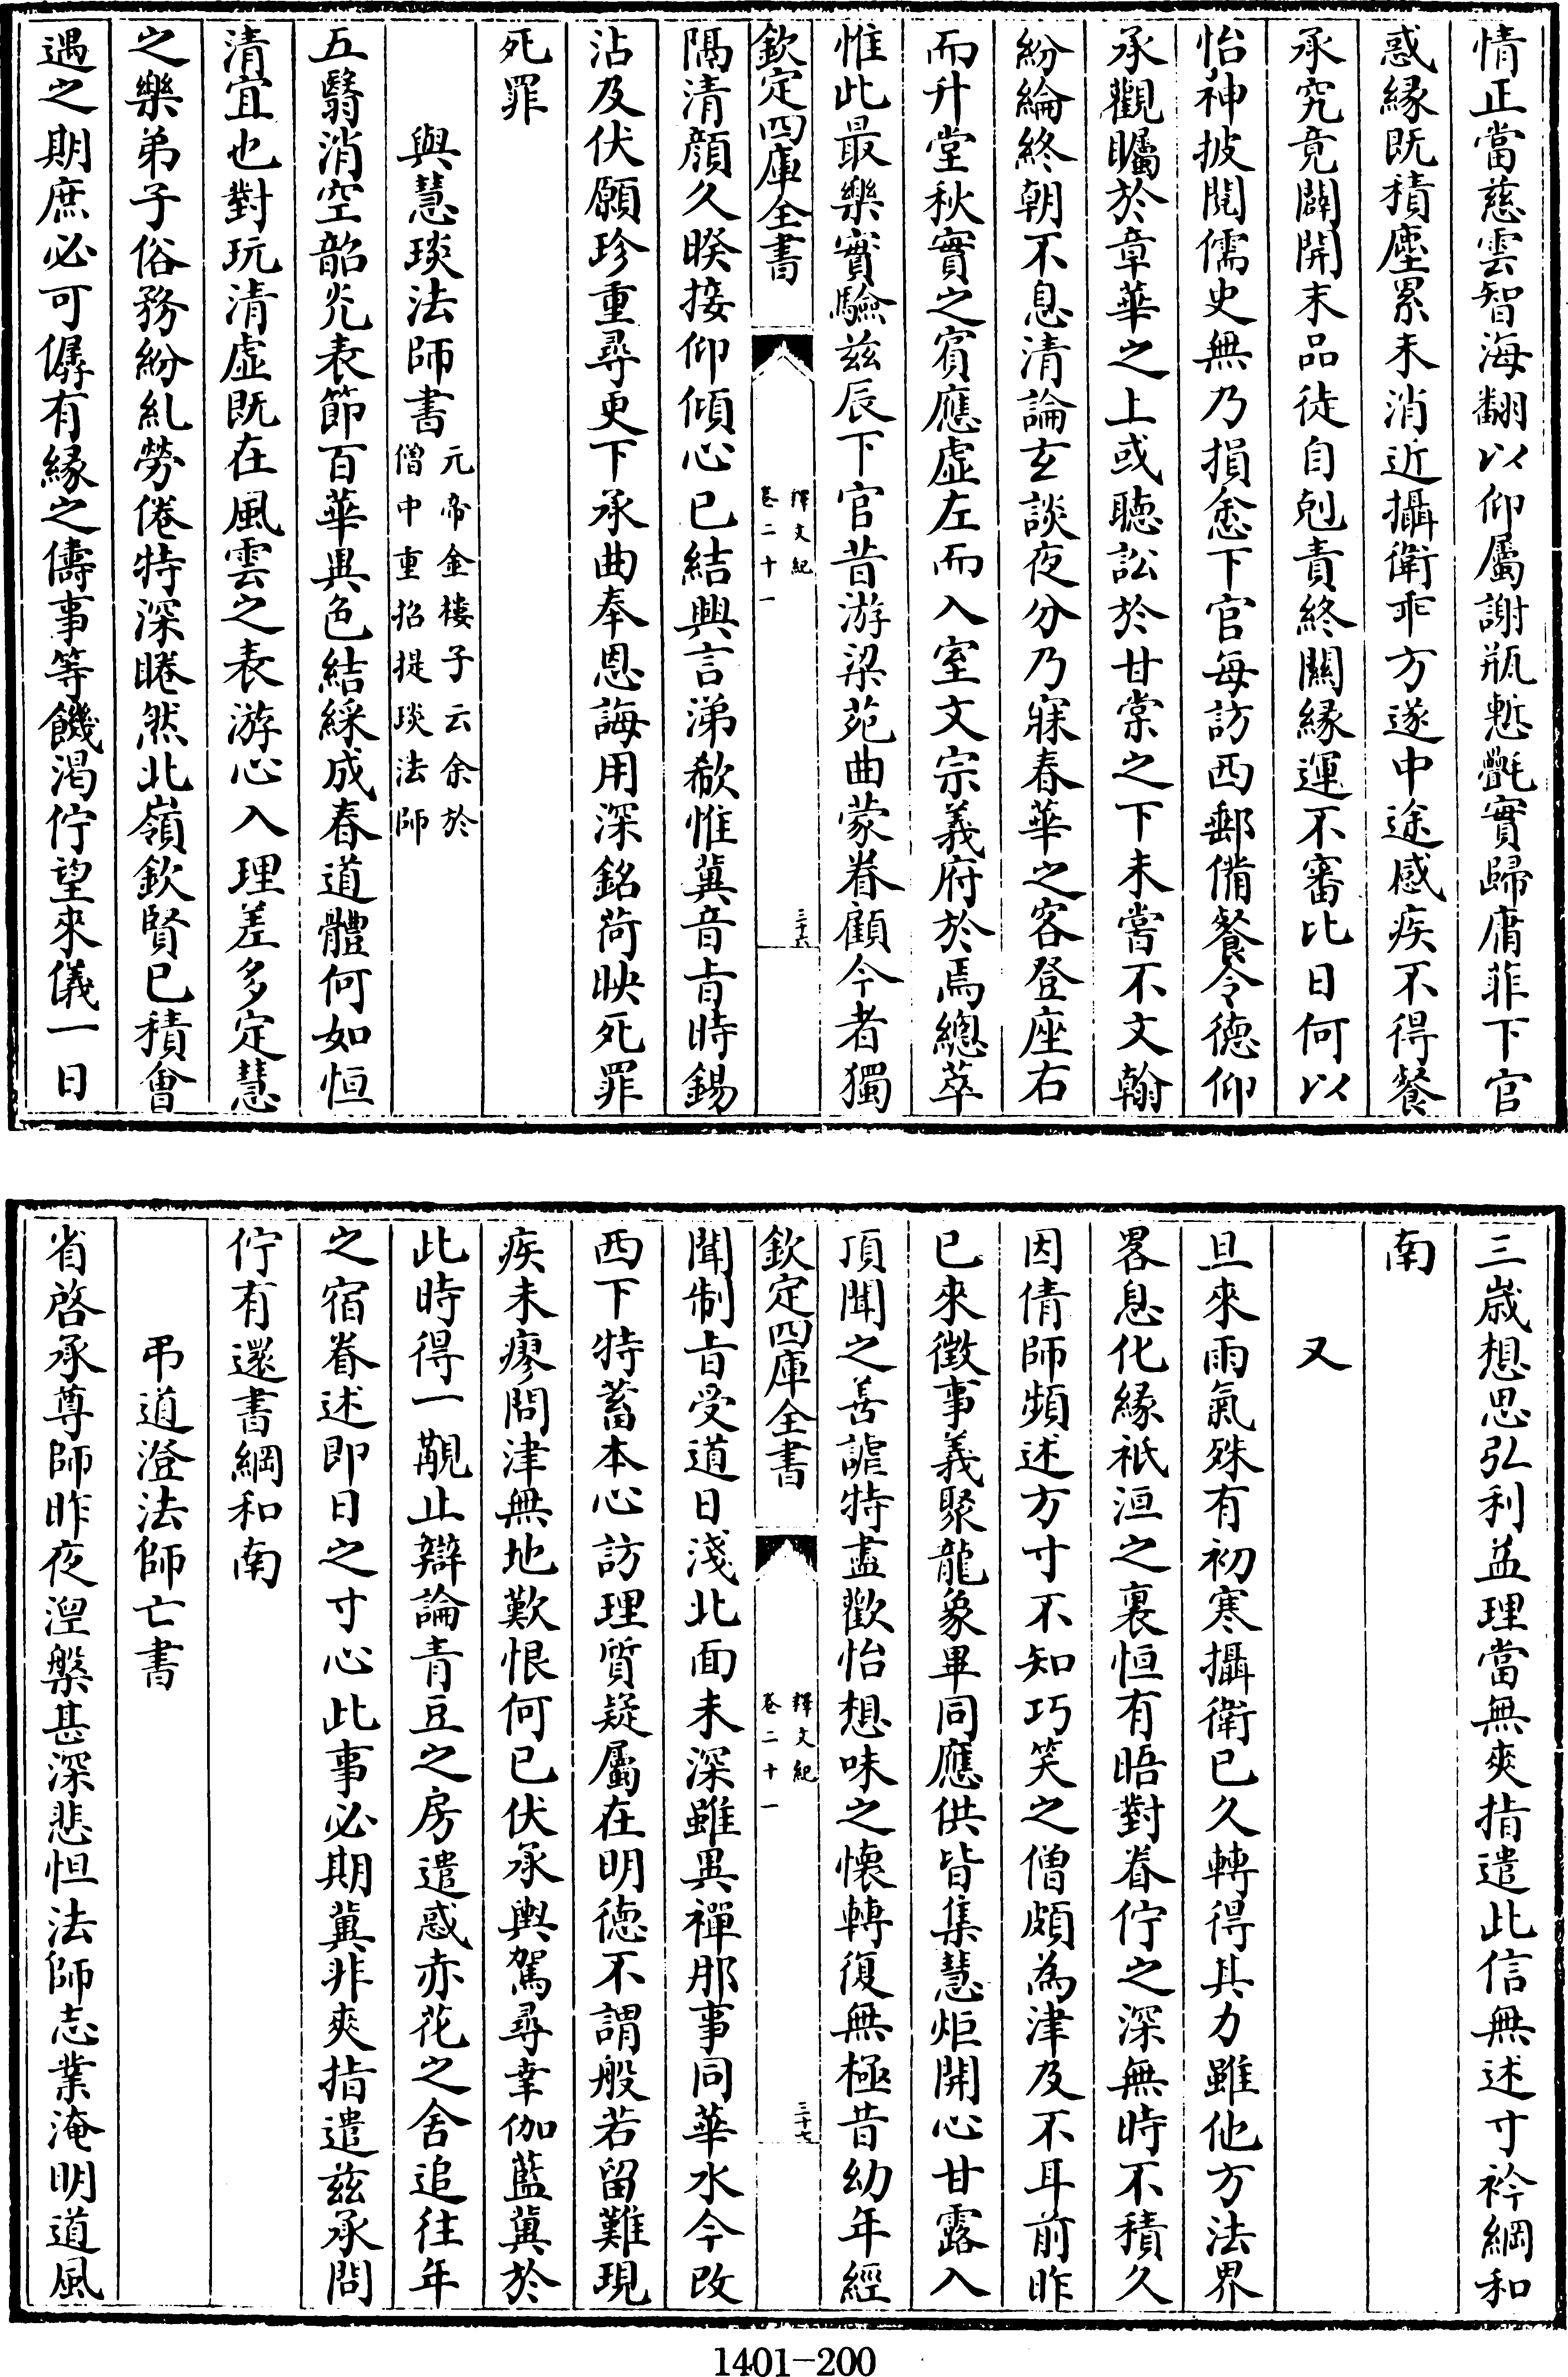 情正當慈雲智海翻以仰屬謝瓶慙㲲實歸庸菲下官
惑緣既積塵累未消近攝衛乖方遂中途感疾不得餐
承究竟闢開末品徒自剋責終關緣運不審比日何以
怡神披閱儒史無乃損悆下官每訪西郵備餐令德仰
承觀矚於章華之上或聽訟於甘棠之下未嘗不文翰
紛綸終朝不息清論玄談夜分乃寐春華之客登座右
而升堂秋實之賓應虛左而入室文宗義府於焉總萃
惟此最樂實驗兹辰下官昔游梁苑曲蒙眷顧今者獨
欽定四庫全書
釋文紀
卷二十一
三十六
隔清顏久睽接仰傾心已結興言涕欷惟冀音旨時錫
沾及伏願珍重尋更下承曲奉恩誨用深銘荷映死罪
死罪
與慧琰法師書
元帝金樓子云余於
僧中重招提琰法師
五翳消空韶光表節百華異色結綵成春道體何如恒
清宜也對玩清虛既在風雲之表游心入理差多定慧
之樂弟子俗務紛糺勞倦特深睠然北嶺欽賢已積會
遇之期庶必可孱有緣之儔事等饑渴佇望來儀一日
三歲想思弘利益理當無爽指遣此信無述寸衿綱和
南
又
旦來雨氣殊有初寒攝衛已久轉得其力雖他方法界
畧息化緣祇洹之裏恒有晤對眷佇之深無時不積久
因倩師頻述方寸不知巧笑之僧頗為津及不耳前昨
已來徵事義聚龍象畢同應供皆集慧炬開心甘露入
頂聞之善謔特盡歡怡想味之懷轉復無極昔幼年經
欽定四庫全書
釋文紀
卷二十一
三十七
聞制旨受道日淺北面未深雖異禪那事同華水今改
西下特蓄本心訪理質疑屬在明德不謂般若留難現
疾未瘳問津無地歎恨何已伏承輿駕尋幸伽藍冀於
此時得一覯止辯論青豆之房遣惑赤花之舍追往年
之宿眷述即日之寸心此事必期冀非爽指遣兹承問
佇有還書綱和南
弔道澄法師亡書
省啓承尊師昨夜湼槃甚深悲怛法師志業淹明道風
1401-200